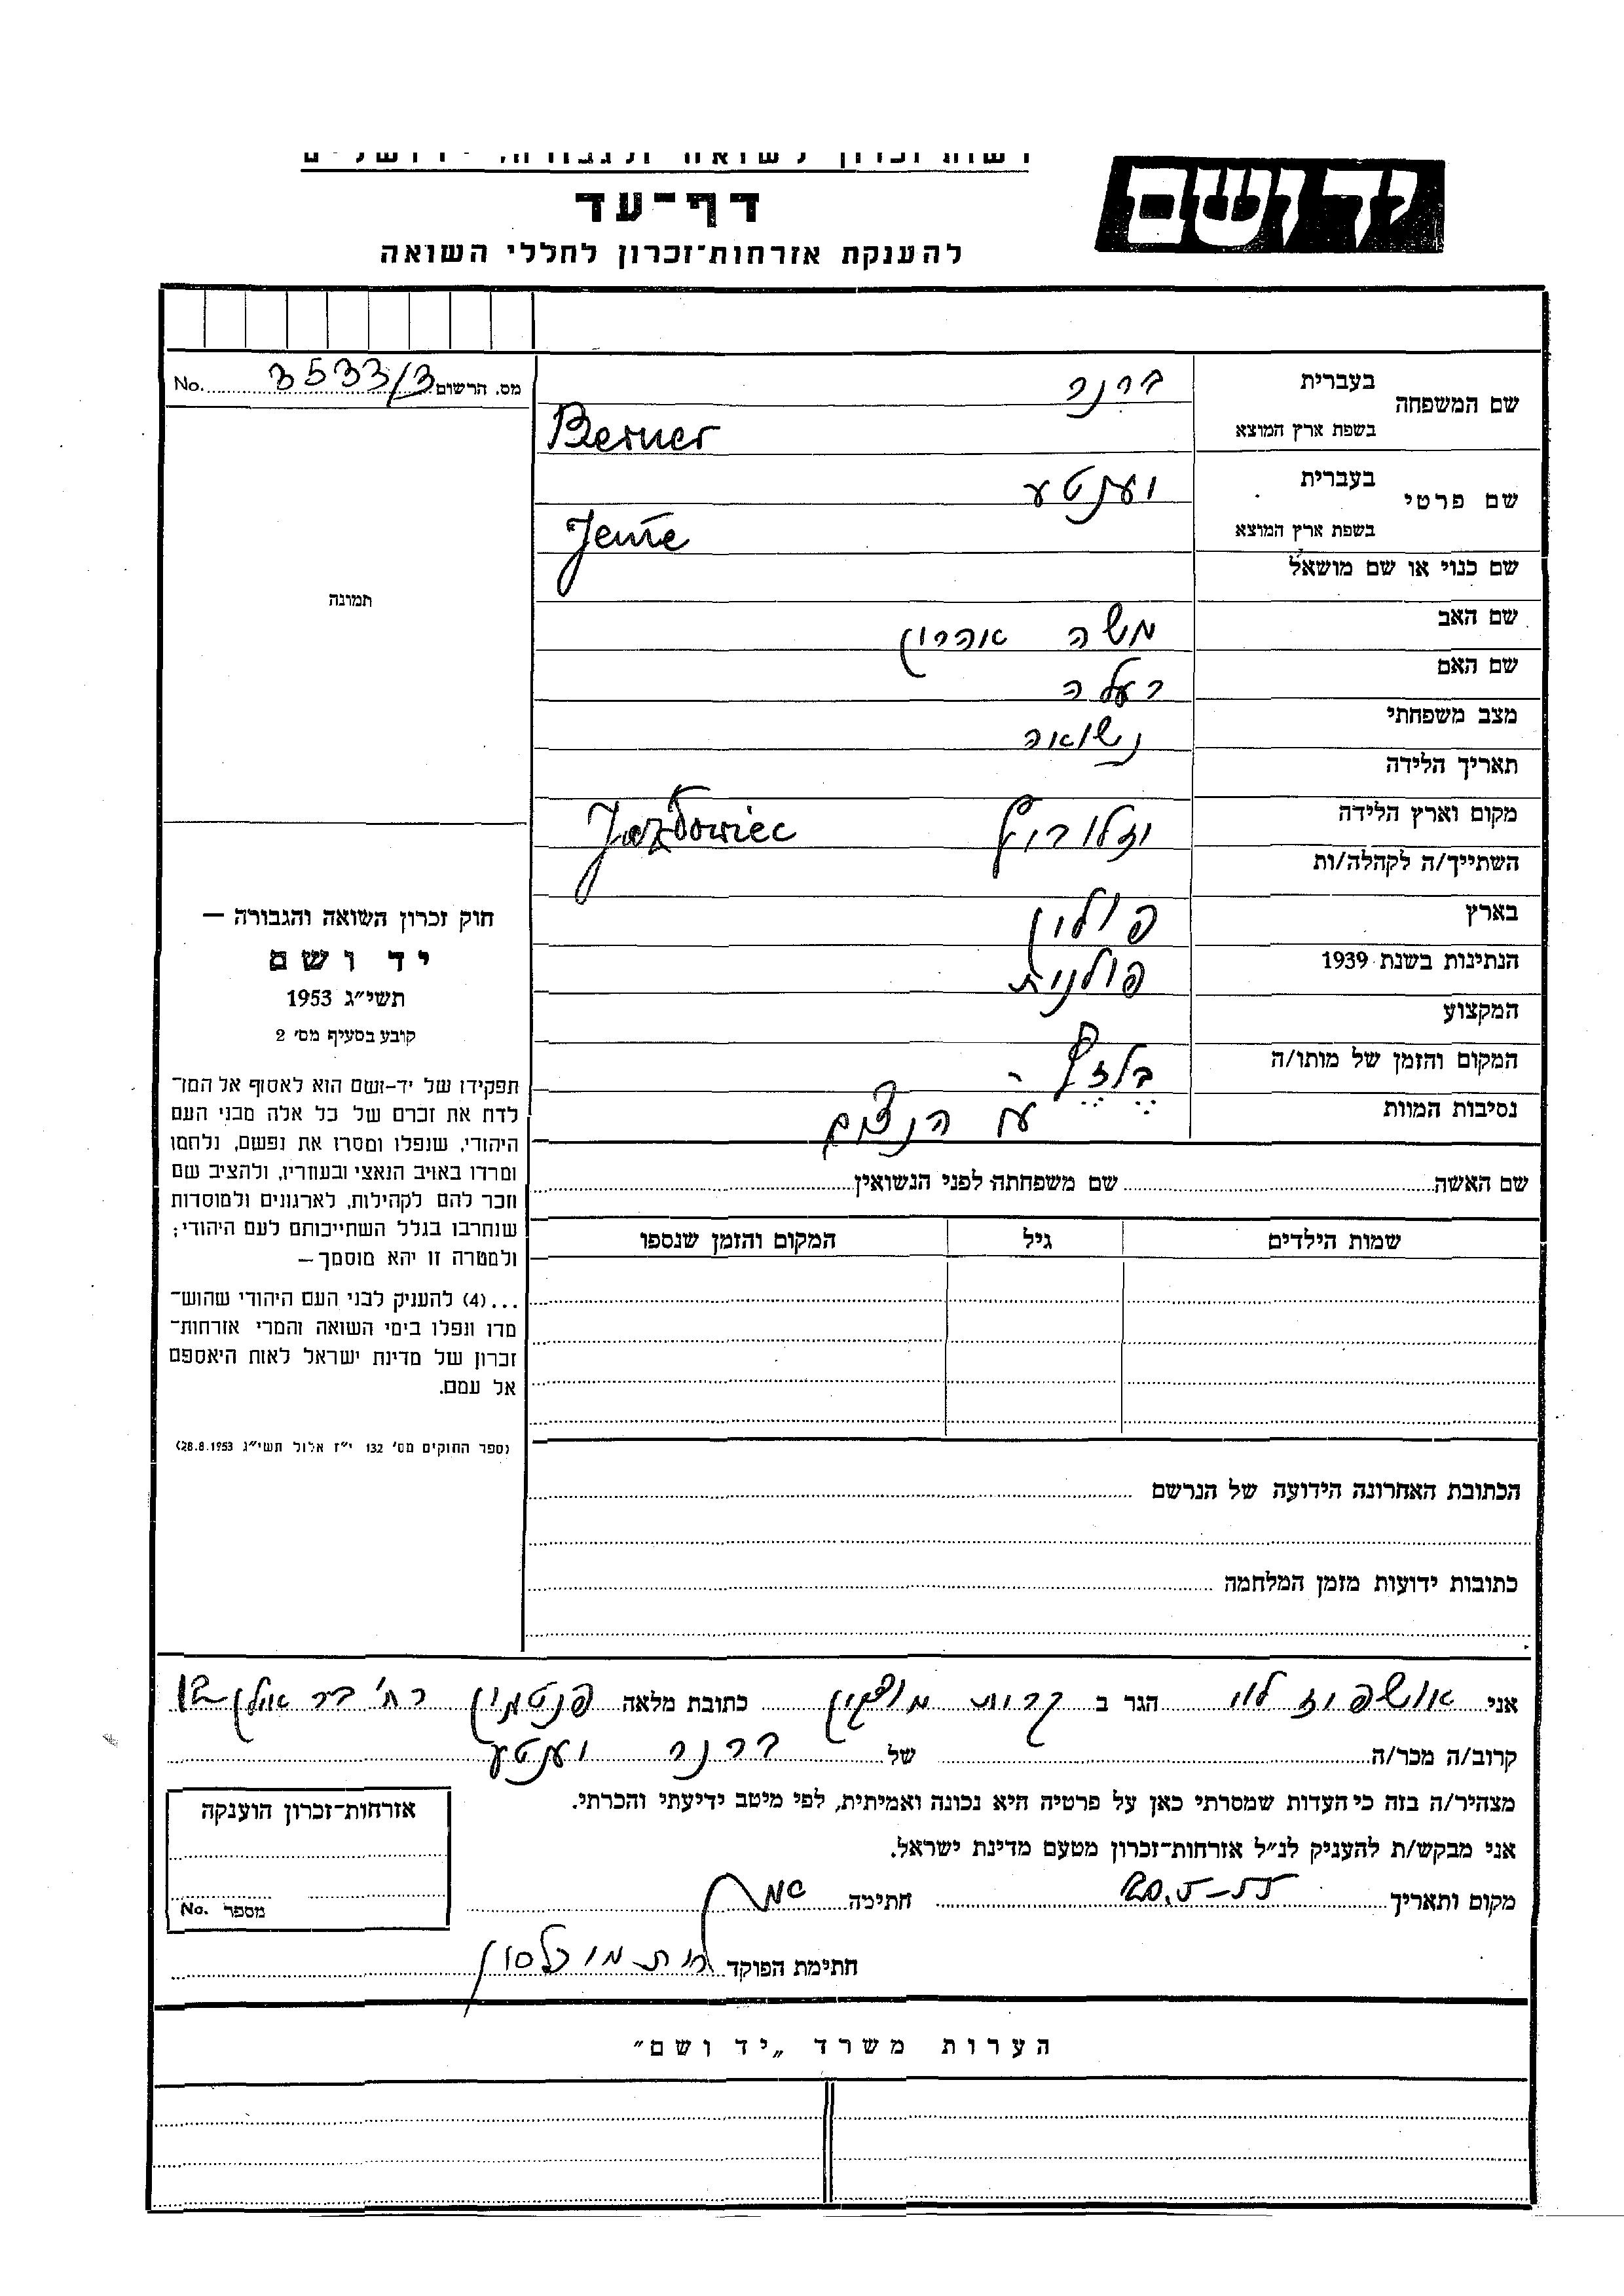 רשות זכרון לשואה ולגבורה, ירושלים
יד ושם
דף־עד
להענקת אזרחות־זכרון לחללי השואה
מס. הרשום 3533/3 No.
שם המשפחה
בעברית ברנר
בשפת ארץ המוצא Berner
שם פרטי
בעברית יענטע
בשפת ארץ המוצא Jente
שם כנוי או שם מושאל
שם האב משה אהרון
שם האם
מצב משפחתי נשואה
תאריך הלידה
מקום וארץ הלידה Jazłowiec
השתייך/ה לקהלה/ות
בארץ פולין
הנתינות בשנת 1939 פולנית
המקצוע
המקום והזמן של מותו/ה
נסיבות המוות
תמונה
חוק זכרון השואה והגבורה —
יד ושם
תשי״ג 1953
קובע בסעיף מס׳ 2
תפקידו של יד-ושם הוא לאסוף אל המו־
לדת את זכרם של כל אלה מבני העם
היהודי, שנפלו ומסרו את נפשם, נלחמו
ומרדו באויב הנאצי ובעוזריו, ולהציב שם
וזכר להם לקהילות, לארגונים ולמוסדות
שנחרבו בגלל השתייכותם לעם היהודי;
ולמטרה זו יהא מוסמך —
...(4) להעניק לבני העם היהודי שהוש־
מדו ונפלו בימי השואה והמרי אזרחות־
זכרון של מדינת ישראל לאות היאספם
אל עמם.
(ספר החוקים מס׳ 132 י״ז אלול תשי״ג 28.8.1953)
שם האשה שם משפחתה לפני הנשואין
שמות הילדים גיל המקום והזמן שנספו
הכתובת האחרונה הידועה של הנרשם
כתובות ידועות מזמן המלחמה
אני אושפיז לוי הגר ב קרית מוצקין כתובת מלאה רח׳ בר אילן 12
קרוב/ה מכר/ה של ברנר יענטע
מצהיר/ה בזה כי העדות שמסרתי כאן על פרטיה היא נכונה ואמיתית, לפי מיטב ידיעתי והכרתי.
אני מבקש/ת להעניק לנ״ל אזרחות־זכרון מטעם מדינת ישראל.
מקום ותאריך 20.5-55 חתימה
חתימת הפוקד
אזרחות־זכרון הוענקה
מספר No.
הערות משרד „יד ושם״